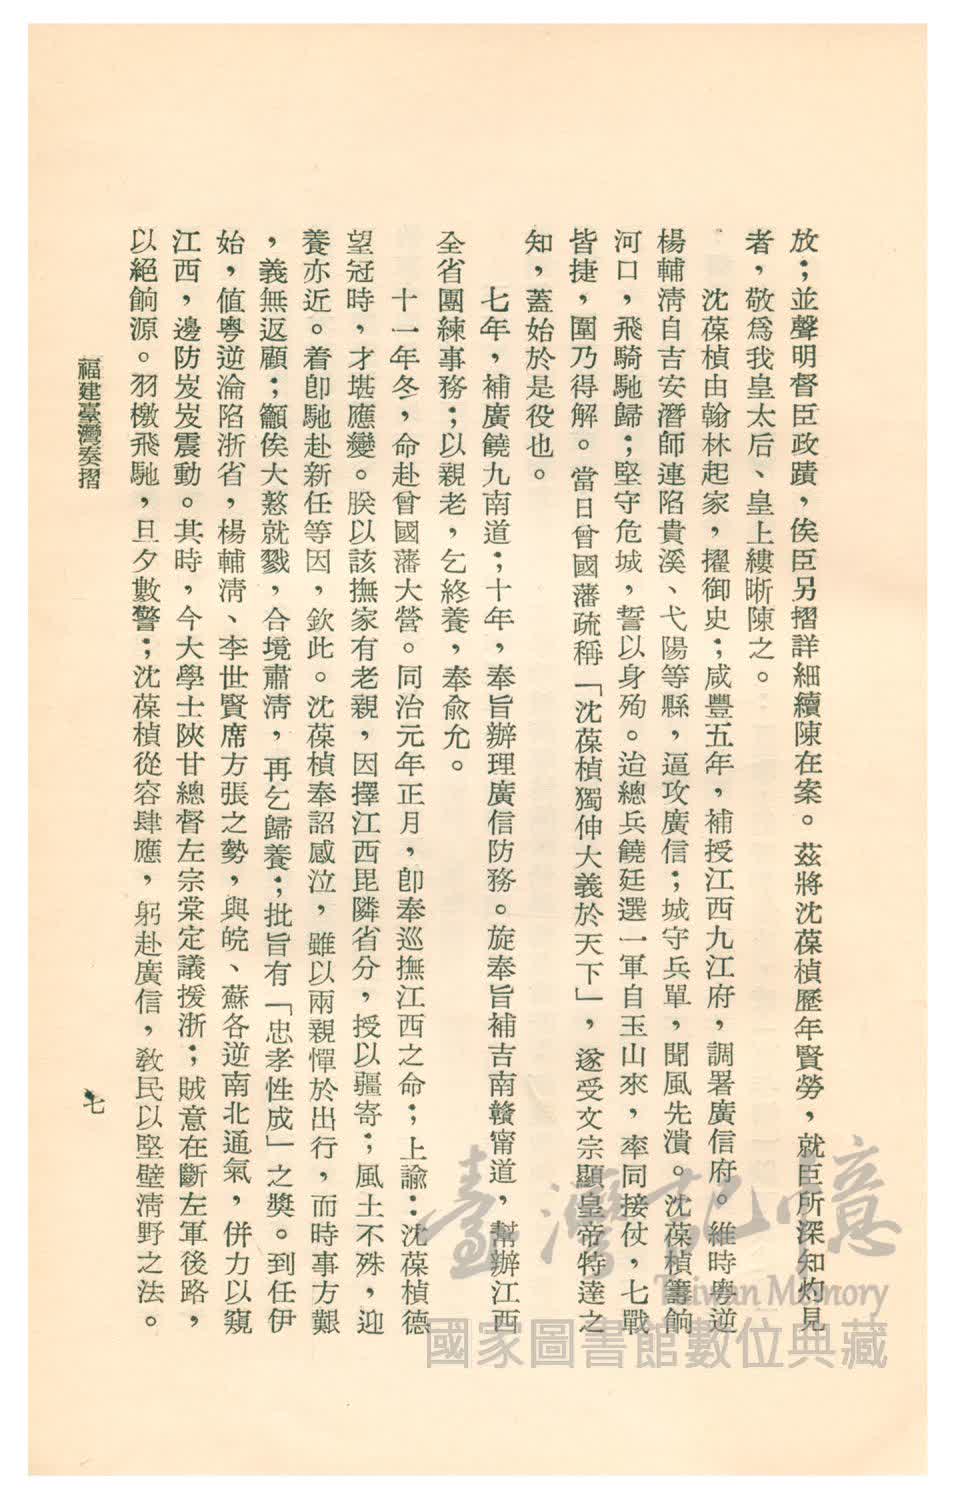 放；並聲明督臣政蹟，俟臣另摺詳細續陳在案。茲將沈葆楨歷年賢勞，就臣所深知灼見
者，敬為我皇太后、皇上縷晰陳之。
沈葆楨由翰林起家，擢御史；咸豐五年，補授江西九江府，調署廣信府。維時粵逆
楊輔淸自吉安潛師連陷貴溪、弋陽等縣，逼攻廣信；城守兵單，聞風先潰。沈葆楨籌餉
河口，飛騎馳歸；堅守危城，誓以身殉。迨總兵饒廷選一軍自玉山來，率同接仗，七戰
皆捷，圍乃得解。當日曾國藩疏稱「沈葆楨獨伸大義於天下」，遂受文宗顯皇帝特達之
知，蓋始於是役也。
七年，補廣饒九南道；十年，奉旨辦理廣信防務。旋奉旨補吉南贛甯道，幫辦江西
全省團練事務；以親老，乞終養，奉兪允。
十一年冬，命赴曾國藩大營。同治元年正月，卽奉巡撫江西之命；上諭：沈葆楨德
望冠時，才堪應變。朕以該撫家有老親，因擇江西毘隣省分，授以疆寄；風土不殊，迎
養亦近。着卽馳赴新任等因，欽此。沈葆楨奉詔感泣，雖以兩親憚於出行，而時事方艱
，義無返顧；籲俟大憝就戮，合境肅淸，再乞歸養；批旨有「忠孝性成」之獎。到任伊
始，値粵逆淪陷浙省，楊輔淸、李世賢席方張之勢，與皖、蘇各逆南北通氣，併力以窺
江西，邊防岌岌震動。其時，今大學士陝甘總督左宗棠定議援浙；賊意在斷左軍後路，
以絕餉源。羽檄飛馳，旦夕數警；沈葆楨從容肆應，躬赴廣信，敎民以堅壁淸野之法。
福建臺灣奏摺
七
臺灣記憶
Taiwan Memory
國家圖書館數位典藏